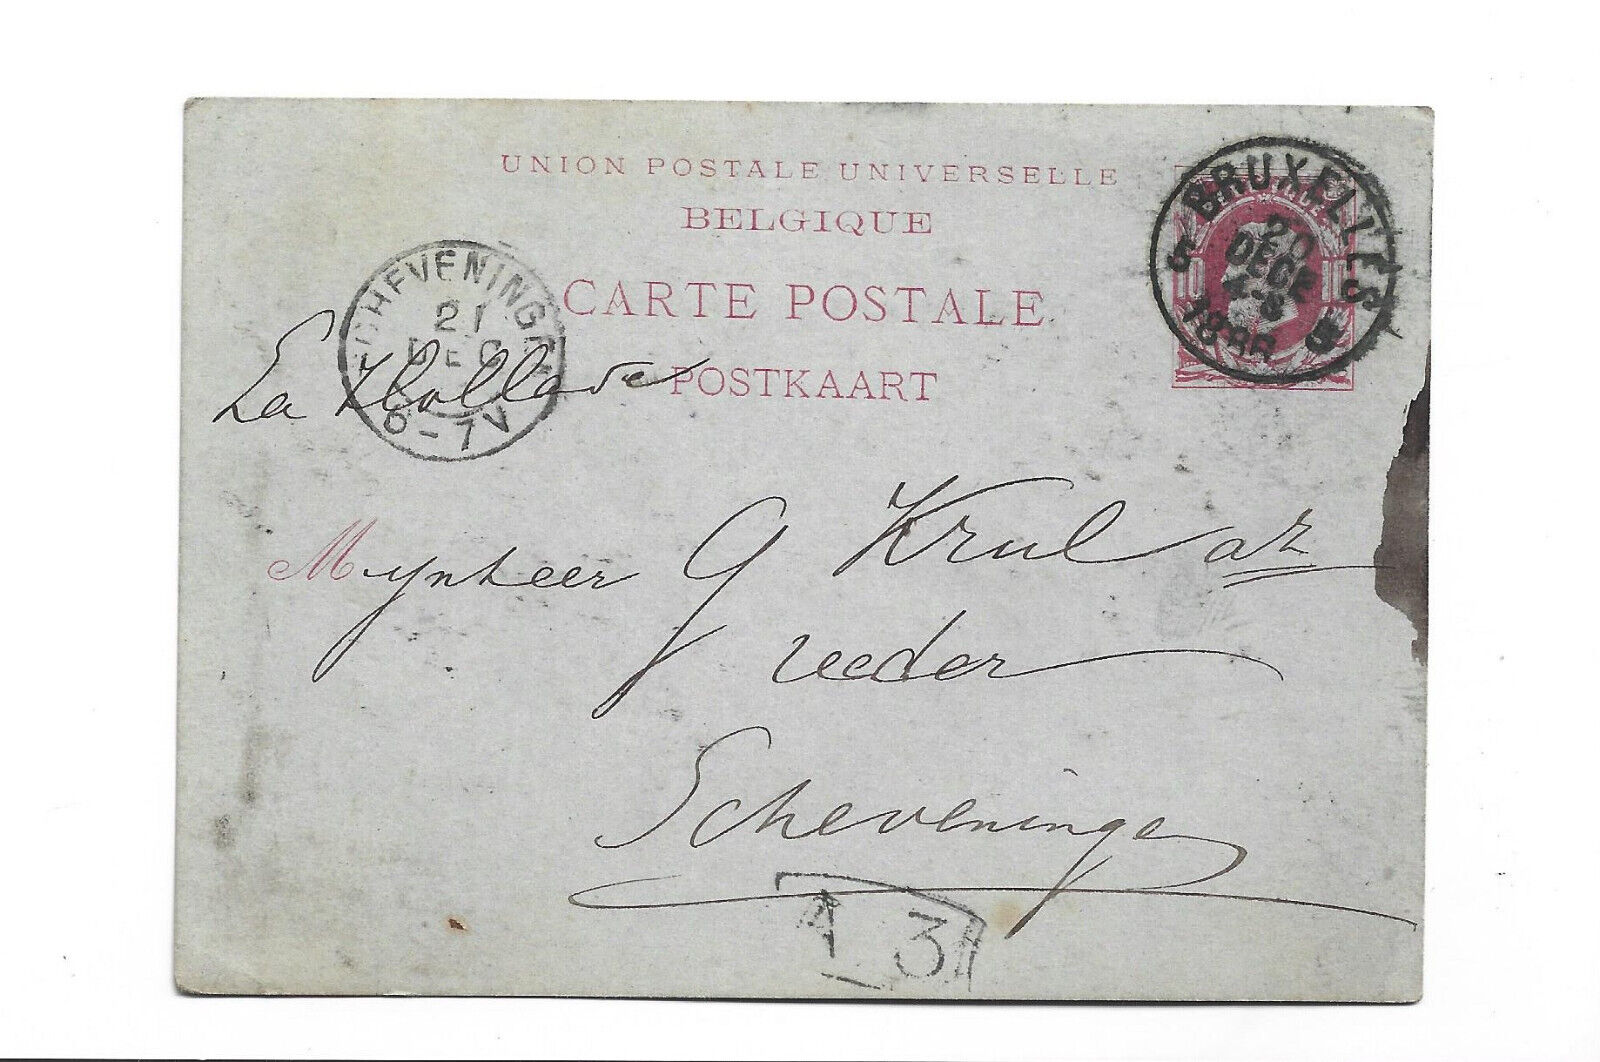 UNION POSTALE UNIVERSELLE
BELGIQUE
CARTE POSTALE
POSTKAART
BRUXELLES
20
DECE
4-S
1886
5 5
SCHEVENINGEN
21
DEC
6-7V
La Hollande
Mynheer G Krul az
reeder
Scheveninge
A 3